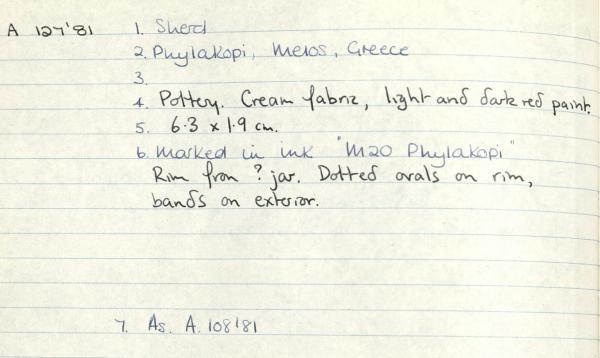 A 127'81
1. Sherd
2. Phylakopi, Melos, Greece
3.
4. Pottery. Cream fabric, light and dark red paint.
5. 6.3 x 1.9 cm.
6. Marked in ink "M20 Phylakopi"
Rim from ? jar. Dotted ovals on rim,
bands on exterior.
7. As. A. 108'81